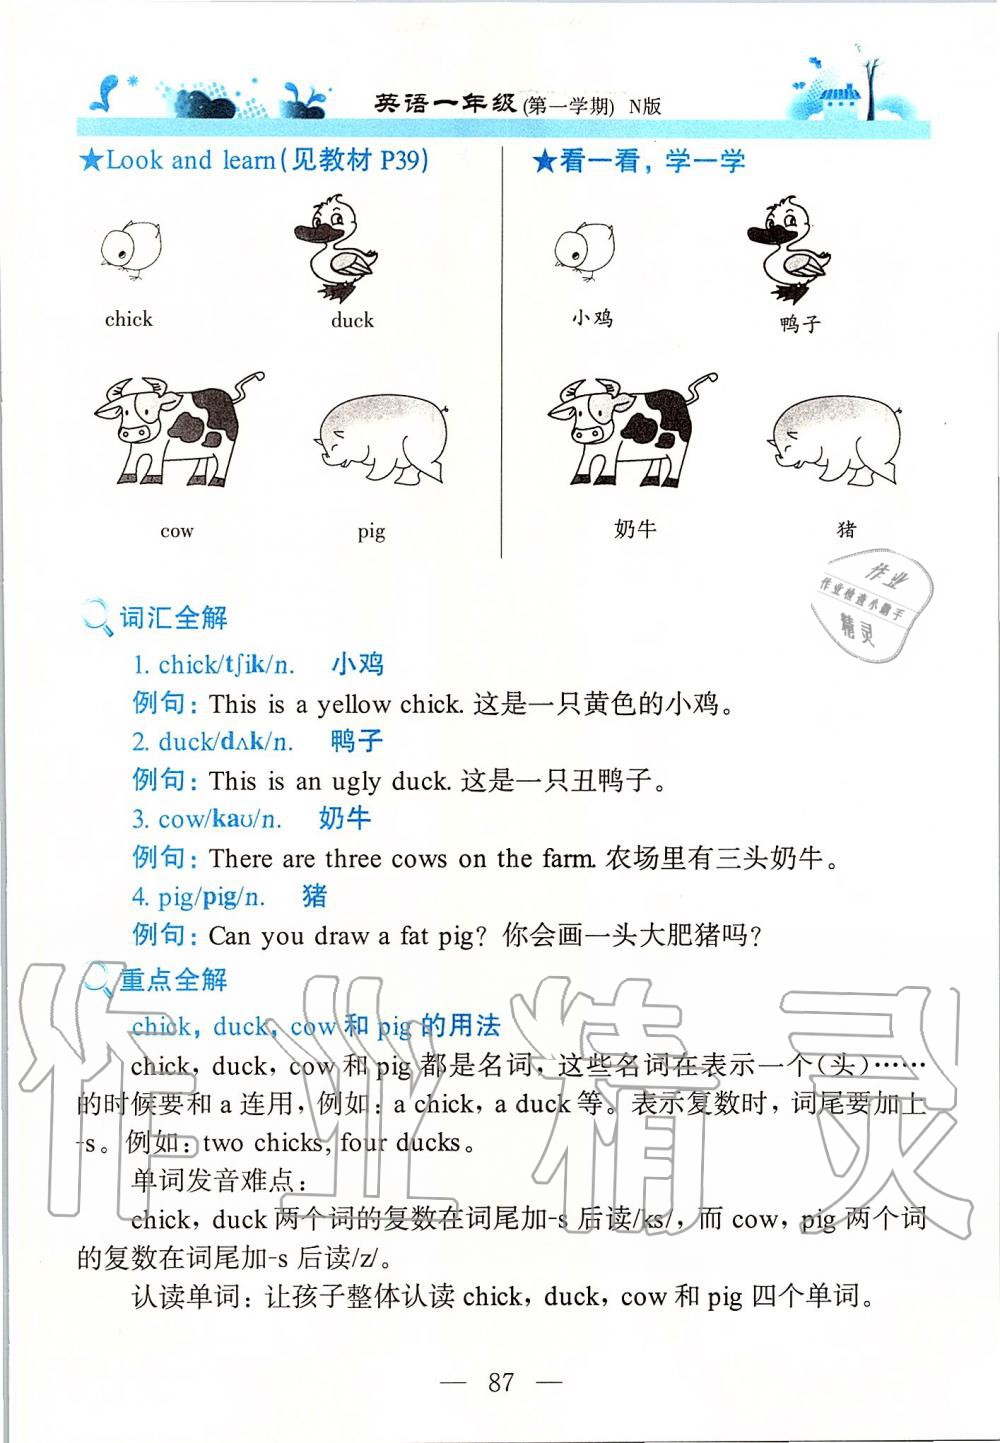 英语一年级(第一学期) N版
★Look and learn(见教材 P39)
chick
duck
cow
pig
★看一看，学一学
小鸡
鸭子
奶牛
猪
作业
作业检查小帮手
精灵
词汇全解
1. chick/tʃik/n. 小鸡
例句：This is a yellow chick. 这是一只黄色的小鸡。
2. duck/dʌk/n. 鸭子
例句：This is an ugly duck. 这是一只丑鸭子。
3. cow/kaʊ/n. 奶牛
例句：There are three cows on the farm. 农场里有三头奶牛。
4. pig/pig/n. 猪
例句：Can you draw a fat pig？你会画一头大肥猪吗？
重点全解
chick，duck，cow 和 pig 的用法
chick，duck，cow 和 pig 都是名词，这些名词在表示一个（头）……
的时候要和 a 连用，例如：a chick，a duck 等。表示复数时，词尾要加上
-s。例如：two chicks, four ducks。
单词发音难点：
chick，duck 两个词的复数在词尾加-s 后读/ks/，而 cow，pig 两个词
的复数在词尾加-s 后读/z/。
认读单词：让孩子整体认读 chick，duck，cow 和 pig 四个单词。
作业精灵
— 87 —